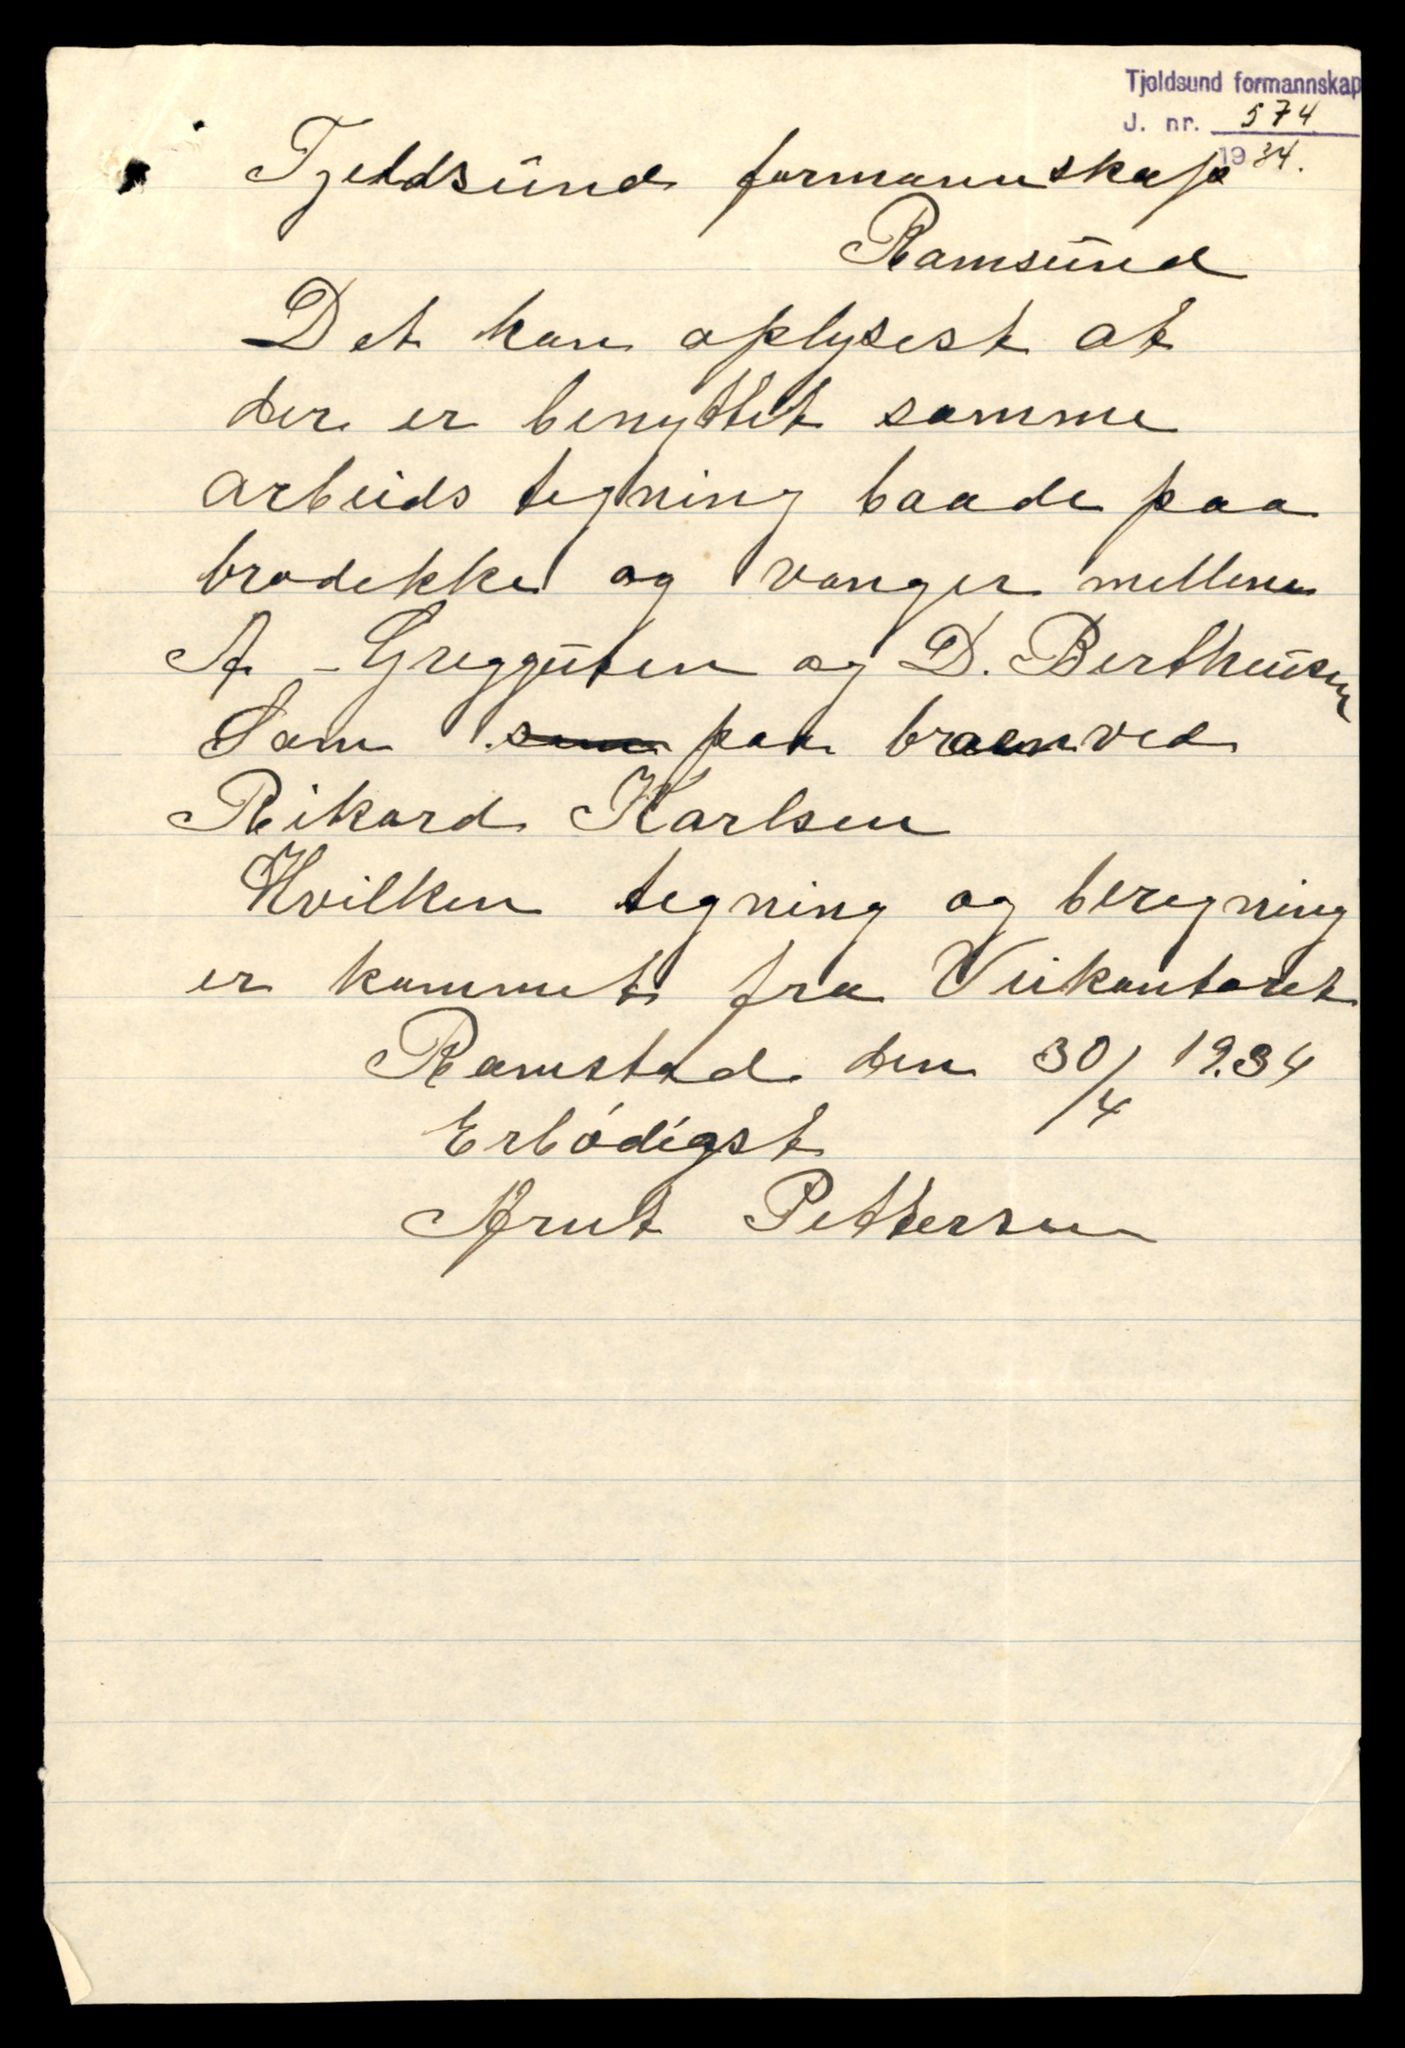 Tjeldsund formannskap
J. nr. 574
1934.
Tjeldsund formannskap
Ramsund
Det kan oplysest at
der er benyttet samme
arbeids tegning baade paa
brodekke og vanger mellem
A - Greggusen og D. Bertheusen
Som paa broen ved
Rikard Karlsen
Hvilken tegning og beregning
er kommet fra Veikontoret
Ramstad den 30/4 1934
Erbódigst
Arnt Pettersen